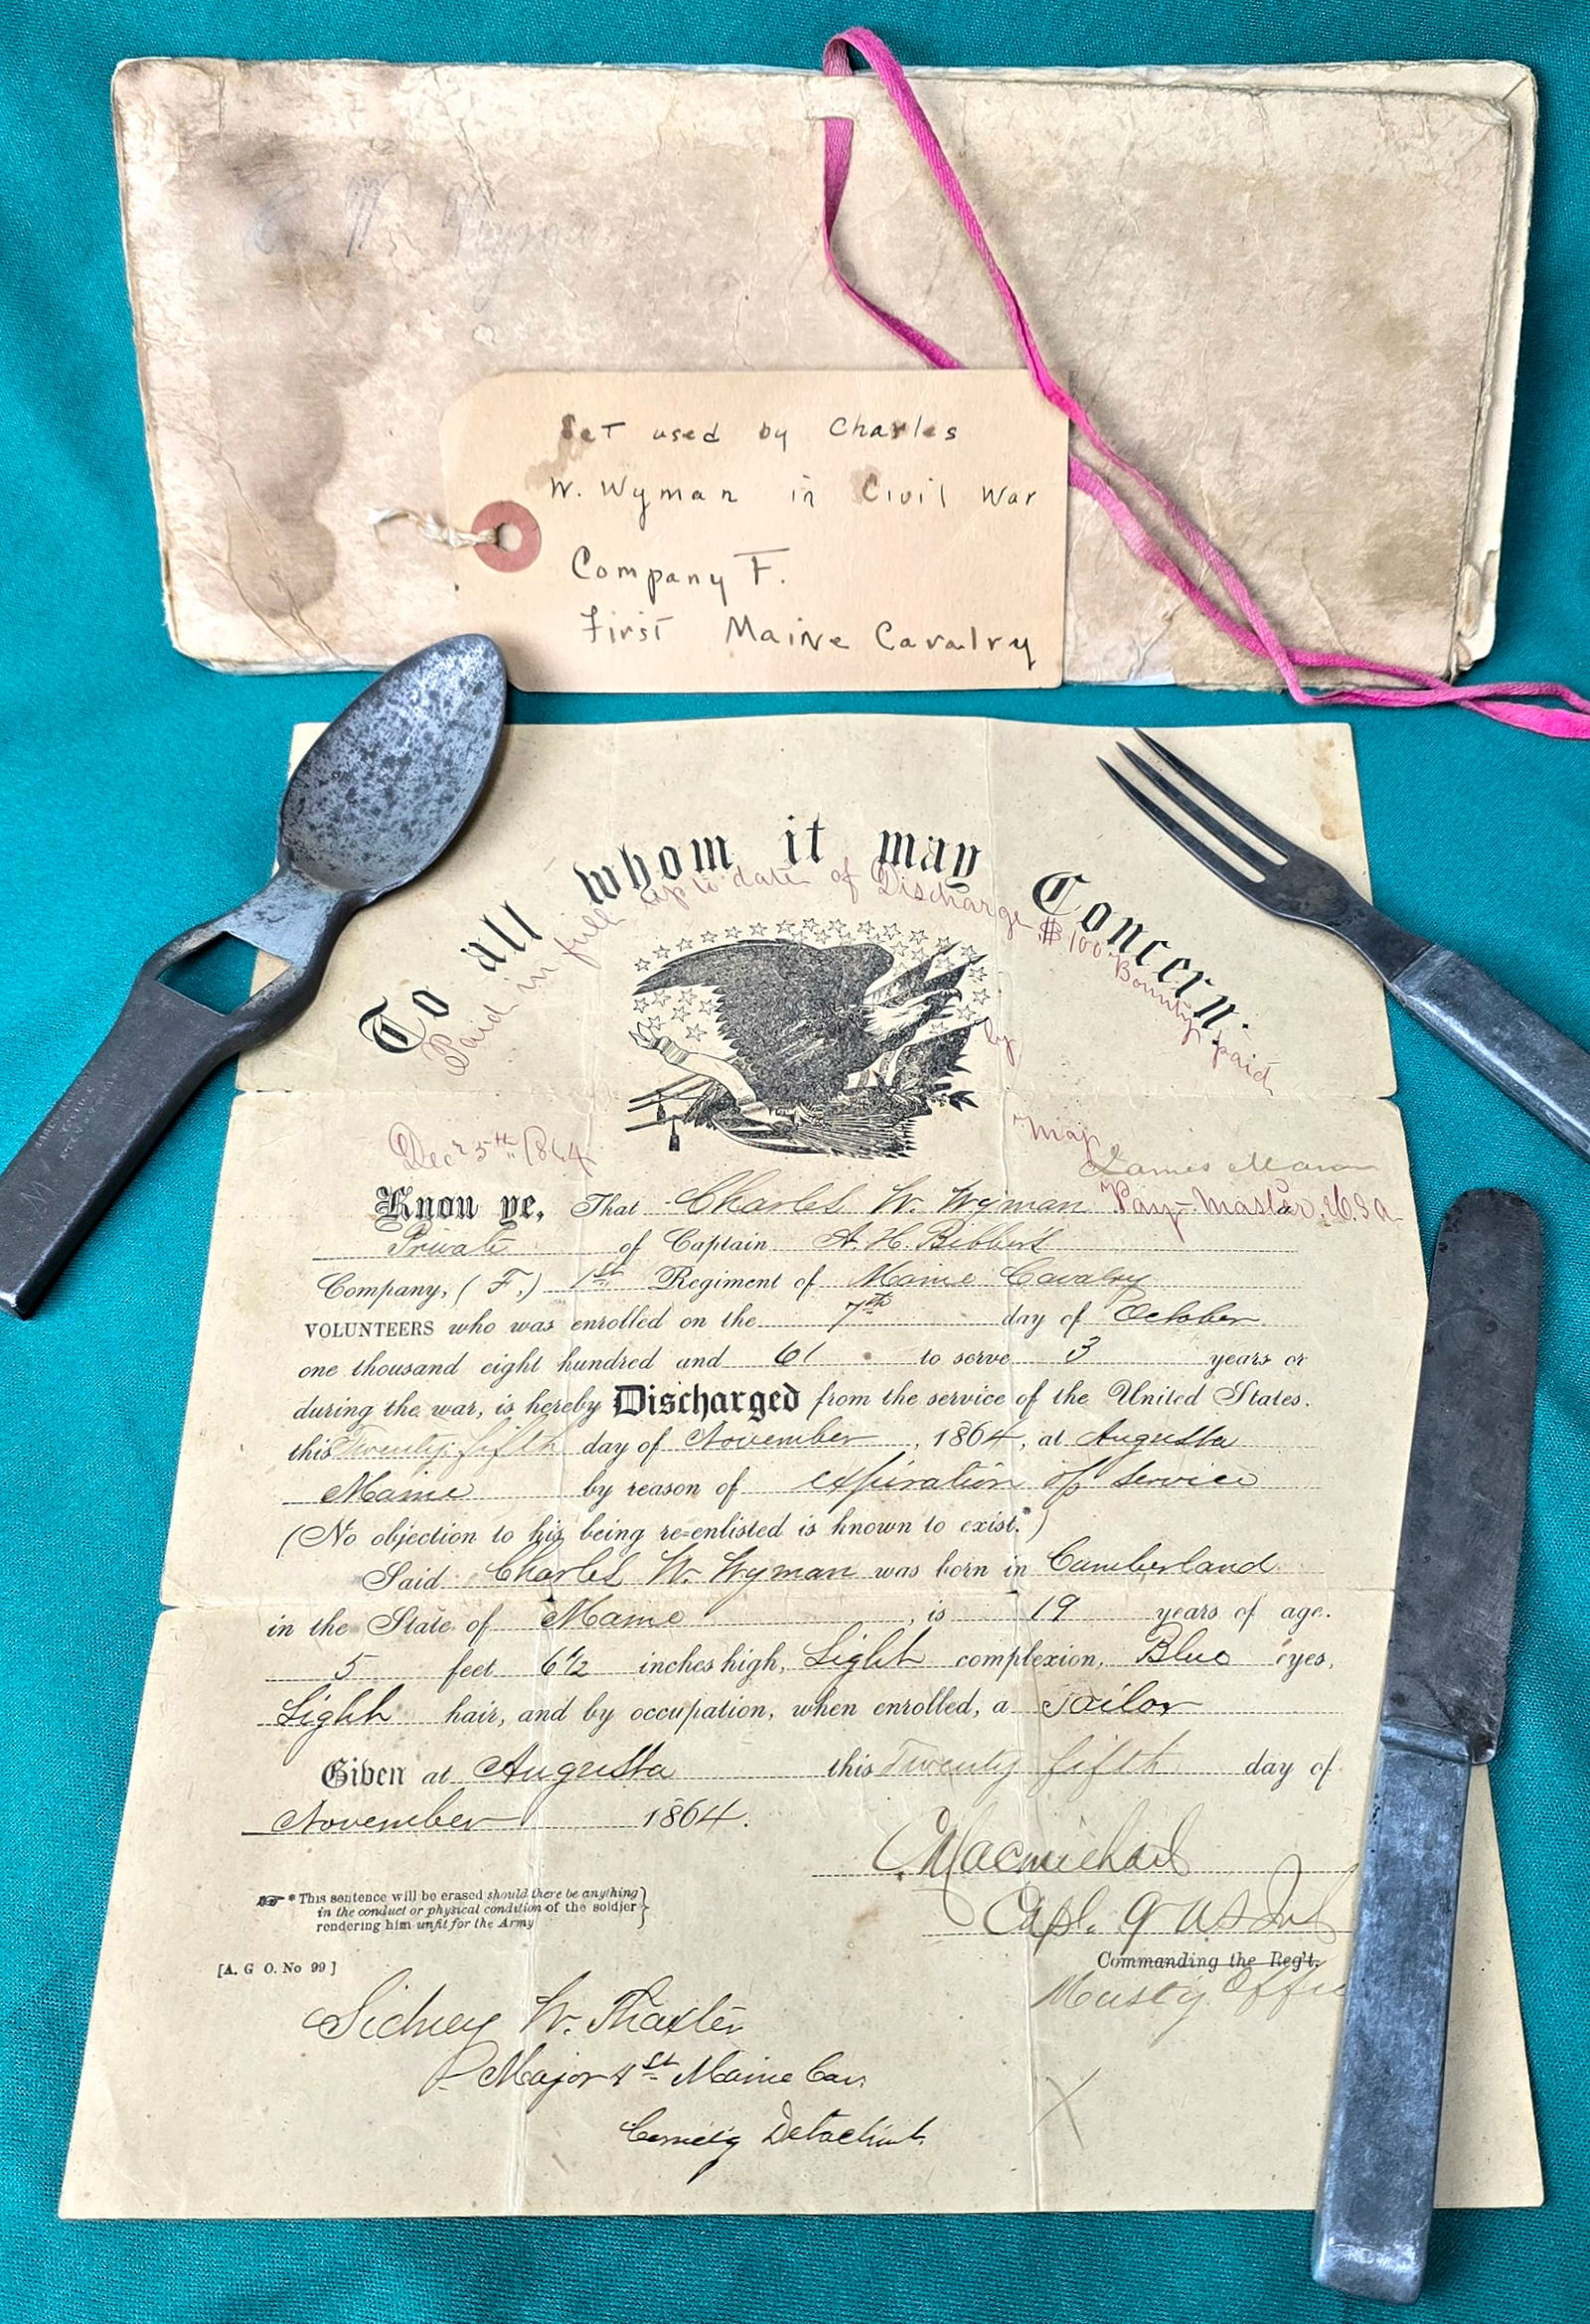 Wyman
Set used by Charles
W. Wyman in Civil War
Company F.
First Maine Cavalry
To all whom it may Concern:
Paid in full up to date of Discharge $100 Bounty paid
by
Dec 5th 1864
Maj
James Mann
Pay-Master U.S.A
Know ye, That Charles W. Wyman
Private of Captain A. H. Bibber's
Company, (F,) 1st Regiment of Maine Cavalry
VOLUNTEERS who was enrolled on the 7th day of October
one thousand eight hundred and 61 to serve 3 years or
during the war, is hereby Discharged from the service of the United States.
this Twenty fifth day of November, 1864, at Augusta
Maine by reason of expiration of service
(No objection to his being re-enlisted is known to exist.*)
Said Charles W. Wyman was born in Cumberland
in the State of Maine, is 19 years of age.
5 feet 6 1/2 inches high, Light complexion, Blue eyes,
Light hair, and by occupation, when enrolled, a Sailor
Given at Augusta this Twenty fifth day of
November 1864.
C. Macmichael
Capt. 9 U S Inf
*This sentence will be erased should there be anything
in the conduct or physical condition of the soldier
rendering him unfit for the Army
Commanding the Reg't.
[A. G O. No 99]
Sidney W. Thaxter
Major 1st Maine Cav.